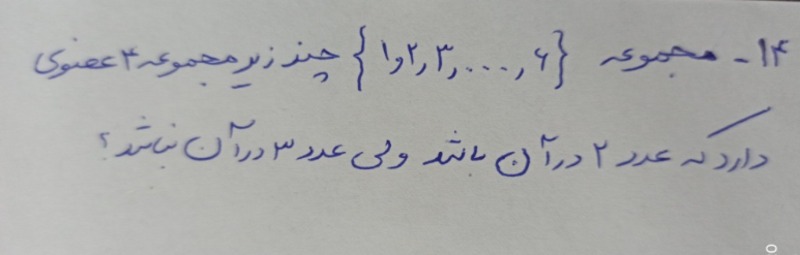 ۱۴- مجموعه {۱,۲,۳,...,۶} چند زیر مجموعه ۴ عضوی
دارد که عدد ۲ در آن باشد ولی عدد ۳ در آن نباشد؟